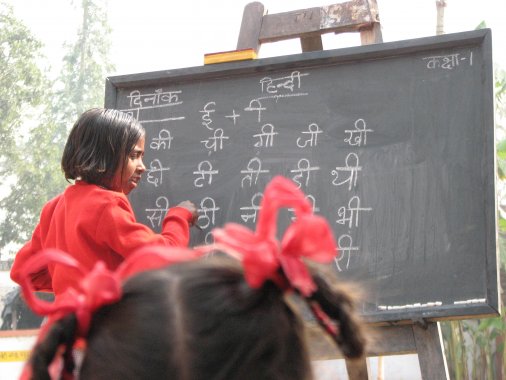 दिनाँक हिन्दी कक्षा-1
ई + ी
की ची गी जी खी
छी टी ती डी थी
सी ठी भी
री